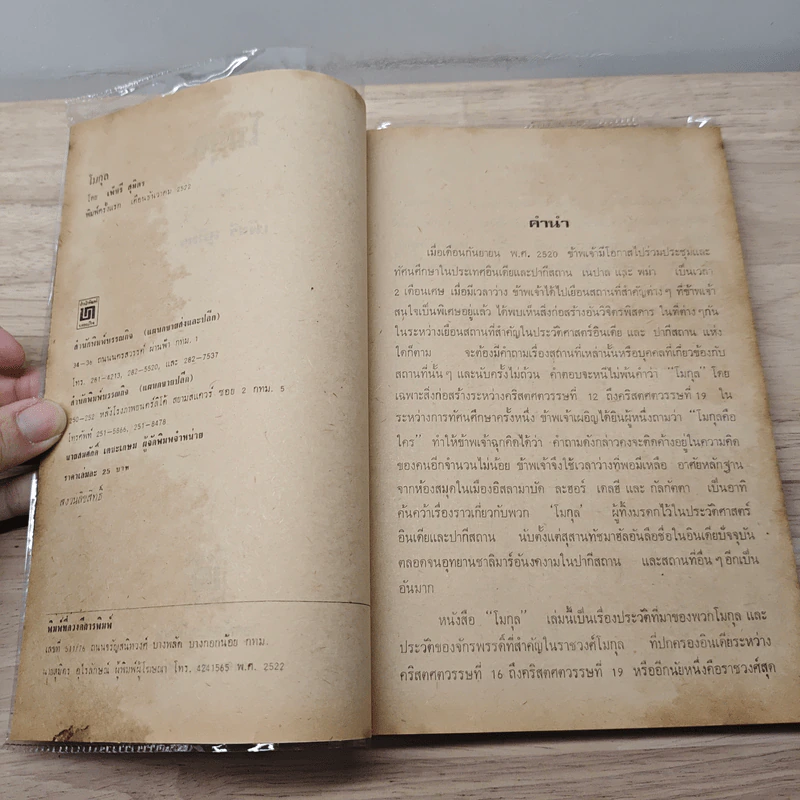 โมกุล
โดย เพ็ชรี สุมิตร
พิมพ์ครั้งแรก เดือนธันวาคม 2522
สำนักพิมพ์บรรณกิจ (แผนกขายส่งและปลีก)
34-36 ถนนนครสวรรค์ ผ่านฟ้า กทม. 1
โทร. 281-4213, 282-5520, และ 282-7537
สำนักพิมพ์บรรณกิจ (แผนกขายปลีก)
250-252 หลังโรงภาพยนตร์ลิโด้ สยามสแควร์ ซอย 2 กทม. 5
โทรศัพท์ 251-5866, 251-8478
นายสมศักดิ์ เตชะเกษม ผู้จัดพิมพ์จำหน่าย
ราคาเล่มละ 25 บาท
สงวนลิขสิทธิ์
พิมพ์ที่
เลขที่ ถนนจรัญสนิทวงศ์ บางพลัด บางกอกน้อย กทม.
ผู้พิมพ์ผู้โฆษณา โทร. 4241565 พ.ศ. 2522
คำนำ
เมื่อเดือนกันยายน พ.ศ. 2520 ข้าพเจ้ามีโอกาสไปร่วมประชุมและ
ทัศนศึกษาในประเทศอินเดียและปากีสถาน เนปาล และ พม่า เป็นเวลา
2 เดือนเศษ เมื่อมีเวลาว่าง ข้าพเจ้าได้ไปเยือนสถานที่สำคัญต่างๆ ที่ข้าพเจ้า
สนใจเป็นพิเศษอยู่แล้ว ได้พบเห็นสิ่งก่อสร้างอันวิจิตรพิสดาร ในที่ต่างๆกัน
ในระหว่างเยี่ยมสถานที่สำคัญในประวัติศาสตร์อินเดีย และ ปากีสถาน แห่ง
ใดก็ตาม จะต้องมีคำถามเรื่องสถานที่เหล่านั้นหรือบุคคลที่เกี่ยวข้องกับ
สถานที่นั้น ๆ และนับครั้งไม่ถ้วน คำตอบจะหนีไม่พ้นคำว่า “โมกุล” โดย
เฉพาะสิ่งก่อสร้างระหว่างคริสตศตวรรษที่ 12 ถึงคริสตศตวรรษที่ 19 ใน
ระหว่างการทัศนศึกษาครั้งหนึ่ง ข้าพเจ้าเผอิญได้ยินผู้หนึ่งถามว่า “โมกุลคือ
ใคร” ทำให้ข้าพเจ้าฉุกคิดได้ว่า คำถามดังกล่าวคงจะติดค้างอยู่ในความคิด
ของคนอีกจำนวนไม่น้อย ข้าพเจ้าจึงใช้เวลาว่างที่พอมีเหลือ อาศัยหลักฐาน
จากห้องสมุดในเมืองอิสลามาบัด ละฮอร์ เดลฮี และ กัลกัตตา เป็นอาทิ
ค้นคว้าเรื่องราวเกี่ยวกับพวก ‘โมกุล’ ผู้ทิ้งมรดกไว้ในประวัติศาสตร์
อินเดียและปากีสถาน นับตั้งแต่สุสานทัชมาฮัลอันลือชื่อในอินเดียปัจจุบัน
ตลอดจนอุทยานชาลิมาร์อันงดงามในปากีสถาน และสถานที่อื่น ๆ อีกเป็น
อันมาก
หนังสือ “โมกุล” เล่มนี้เป็นเรื่องประวัติที่มาของพวกโมกุล และ
ประวัติของจักรพรรดิ์ที่สำคัญในราชวงศ์โมกุล ที่ปกครองอินเดียระหว่าง
คริสตศตวรรษที่ 16 ถึงคริสตศตวรรษที่ 19 หรืออีกนัยหนึ่งคือราชวงศ์สุด